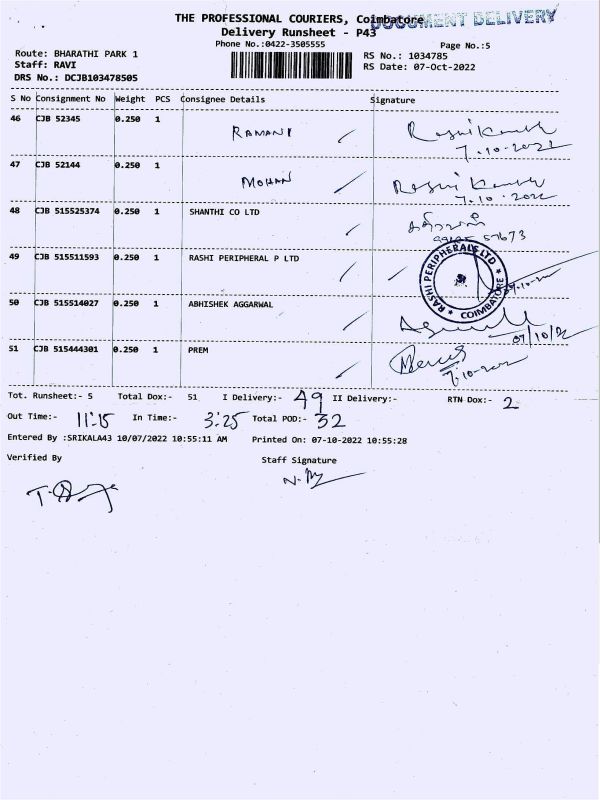 THE PROFESSIONAL COURIERS, Coimbatore
DOCUMENT DELIVERY
Delivery Runsheet - P43
Phone No.:0422-3505555
Page No.:5
Route: BHARATHI PARK 1
RS No.: 1034785
Staff: RAVI
RS Date: 07-Oct-2022
DRS No.: DCJB103478505
S No Consignment No Weight PCS Consignee Details Signature
46 CJB 52345 0.250 1 RAMANI
7.10.2022
47 CJB 52144 0.250 1 MOHAN
7.10.2022
48 CJB 515525374 0.250 1 SHANTHI CO LTD
49 CJB 515511593 0.250 1 RASHI PERIPHERAL P LTD
RASHI PERIPHERALS LTD
COIMBATORE
50 CJB 515514027 0.250 1 ABHISHEK AGGARWAL
07/10/22
51 CJB 515444301 0.250 1 PREM
Tot. Runsheet:- 5 Total Dox:- 51 I Delivery:- 49 II Delivery:- RTN Dox:- 2
Out Time:- 11:15 In Time:- 3:25 Total POD:- 32
Entered By :SRIKALA43 10/07/2022 10:55:11 AM Printed On: 07-10-2022 10:55:28
Verified By Staff Signature